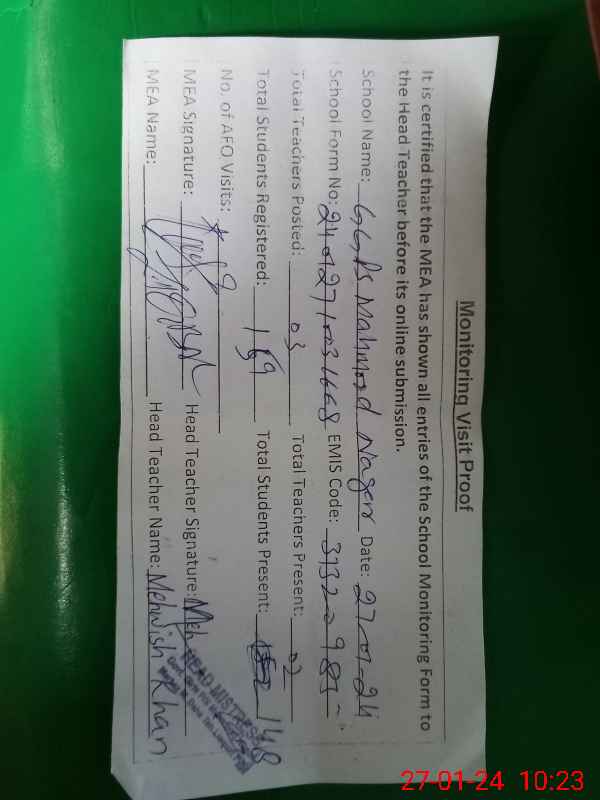 Monitoring Visit Proof
It is certified that the MEA has shown all entries of the School Monitoring Form to
the Head Teacher before its online submission.
School Name: GGPS Mahmood Nager Date: 27-01-24
School Form No: EMIS Code:
Total Teachers Posted: 03 Total Teachers Present: 02
Total Students Registered: 169 Total Students Present: 148
No. of AFO Visits:
MEA Signature: Head Teacher Signature: Meh
MEA Name: Head Teacher Name: Mehwish Khan
HEAD MISTRESS
27-01-24 10:23